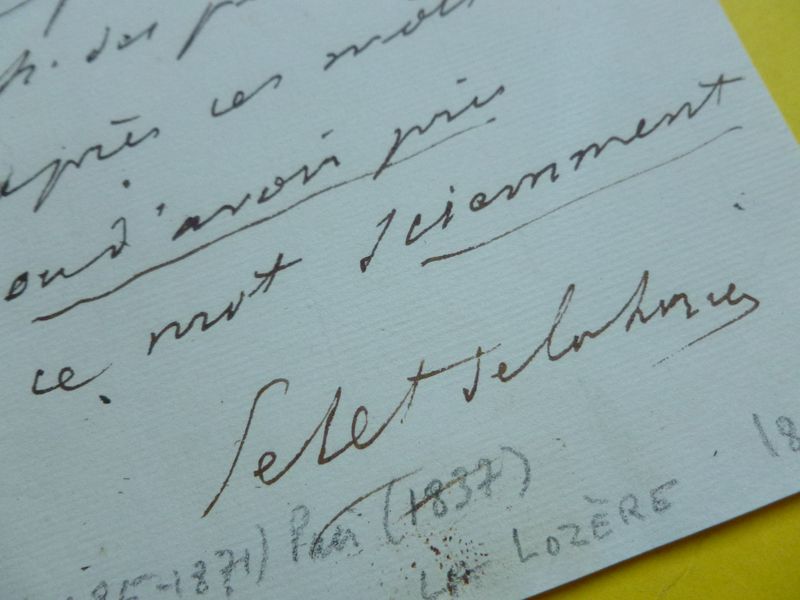 des
après ces mots
ou d'avoir pris
ce mot sciemment
Pelet de la Lozère
85-1871) Pair (1837) 18
LA LOZÈRE